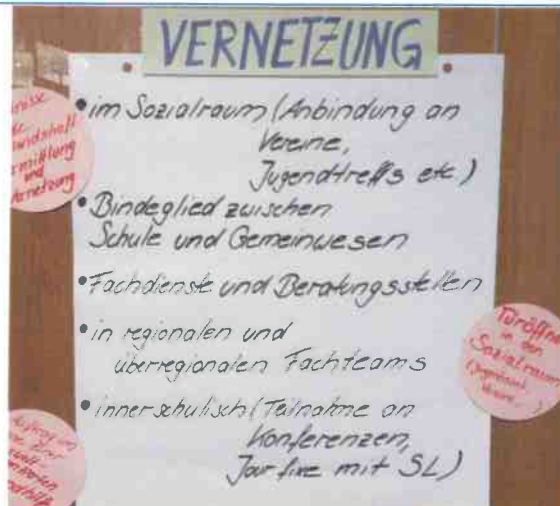 VERNETZUNG
• im Sozialraum (Anbindung an
Vereine,
Jugendtreffs etc)
• Bindeglied zwischen
Schule und Gemeinwesen
• Fachdienste und Beratungsstellen
• in regionalen und
überregionalen Fachteams
• innerschulisch (Teilnahme an
Konferenzen,
Jour fixe mit SL)
und
Türöffne
in den
Sozialraum